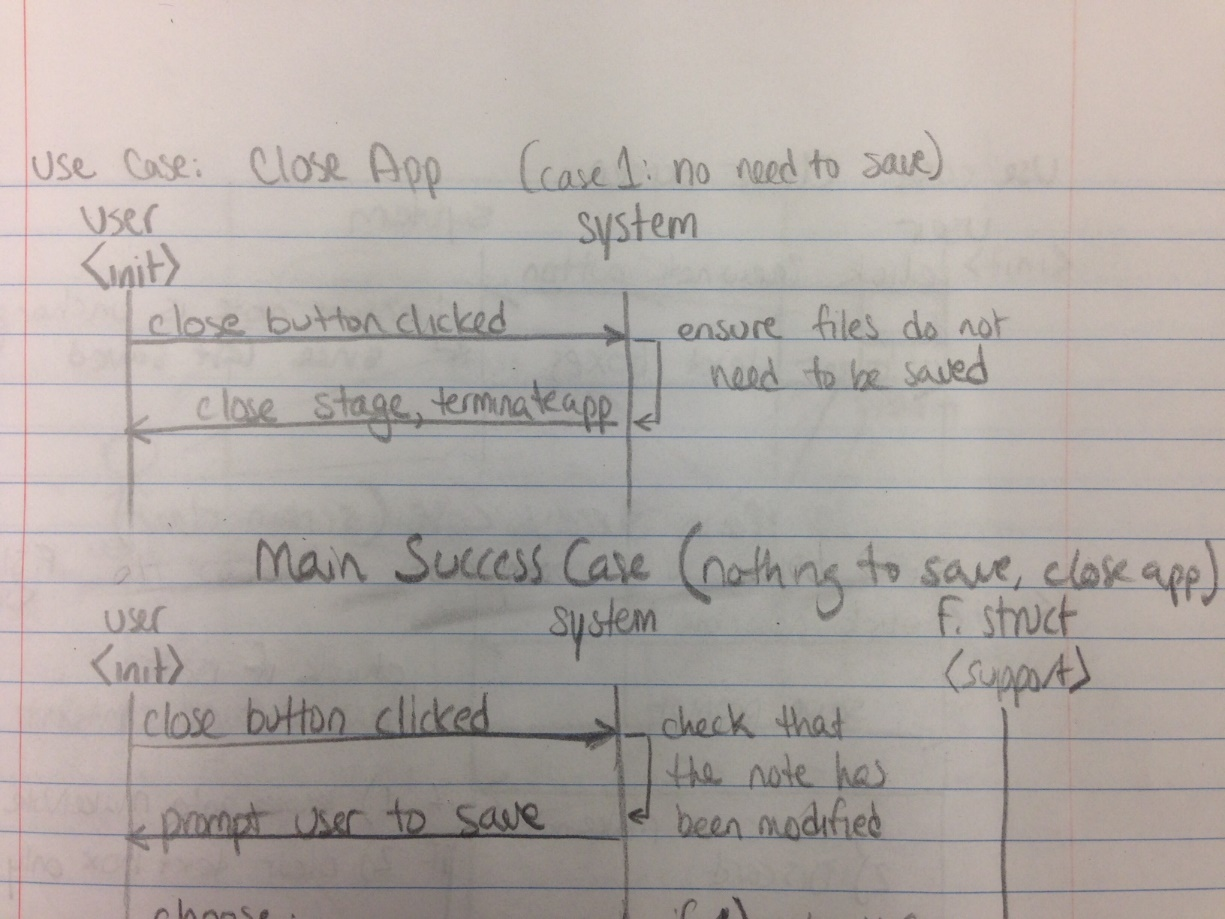 Use Case: Close App (case 1: no need to save)
user system
<init>
close button clicked ensure files do not
need to be saved
close stage, terminate app
Main Success Case (nothing to save, close app)
user system F. struct
<init> <support>
close button clicked check that
the note has
prompt user to save been modified
choose: